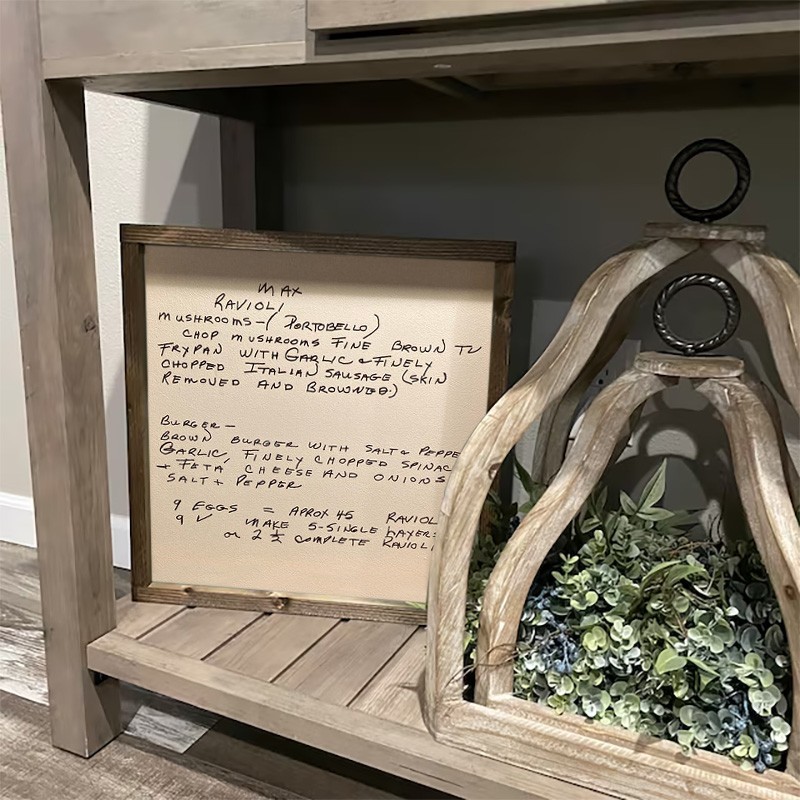 MAX
RAVIOLI
MUSHROOMS-(PORTOBELLO)
CHOP MUSHROOMS FINE BROWN
FRYPAN WITH GARLIC & FINELY
CHOPPED ITALIAN SAUSAGE (SKIN
REMOVED AND BROWNED.)
BURGER-
BROWN BURGER WITH SALT & PEPPE
GARLIC, FINELY CHOPPED SPINAC
+ FETA CHEESE AND ONIONS
SALT + PEPPER
9 EGGS = APROX 45 RAVIOL
9 ✓ MAKE 5-SINGLE LAYER
or 2 ½ COMPLETE RAVIOLI